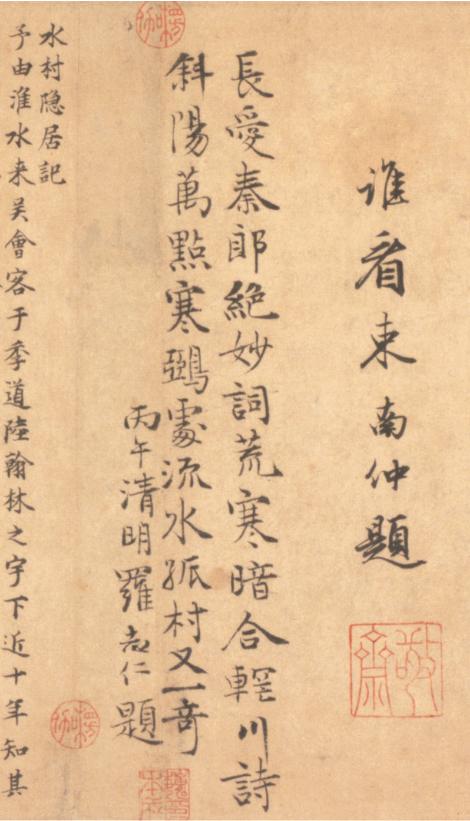 誰看束南仲題
敬齋
長愛秦郎絶妙詞荒寒暗合輞川詩
斜陽萬點寒鵶處流水孤村又一奇
丙午清明羅志仁題
楞伽
楞伽
水村隠居記
予由淮水来吴會客于季道陸翰林之宇下近十年知其